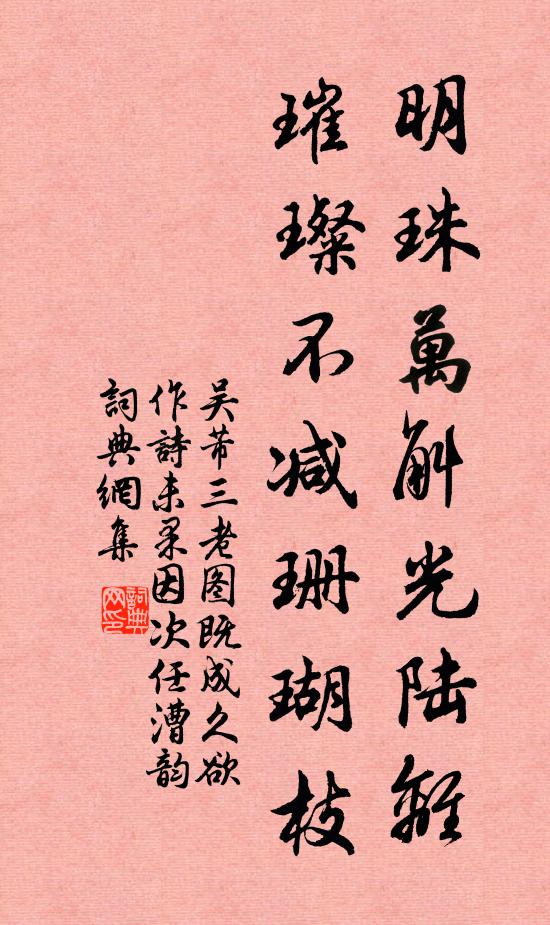 明珠萬斛光陆離
璀璨不减珊瑚枝
吴芾三老图既成久欲
作詩未果因次任漕韵
詞典網集
詞典網印